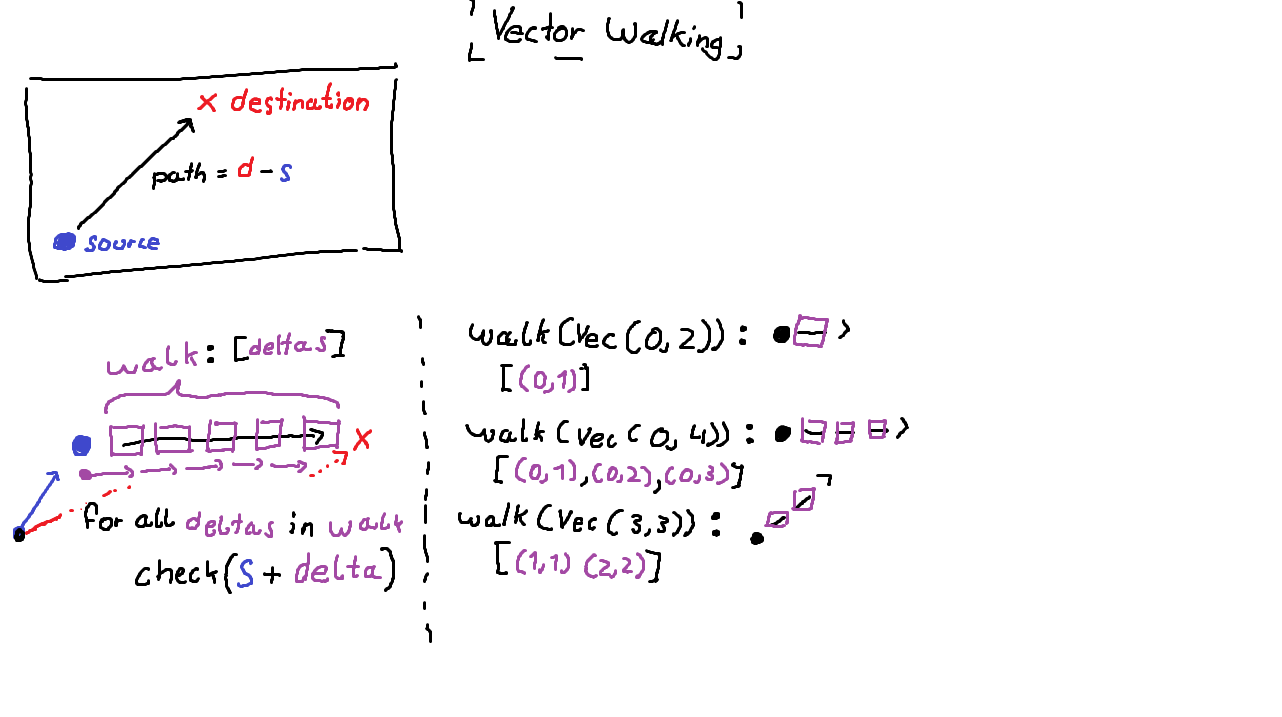 [Vector Walking]
x destination
path = d - s
source
walk: [deltas]
x
for all deltas in walk
check(s + delta)
walk(Vec(0,2)):
[(0,1)]
walk(vec(0,4)):
[(0,1),(0,2),(0,3)]
walk(Vec(3,3)):
[(1,1) (2,2)]